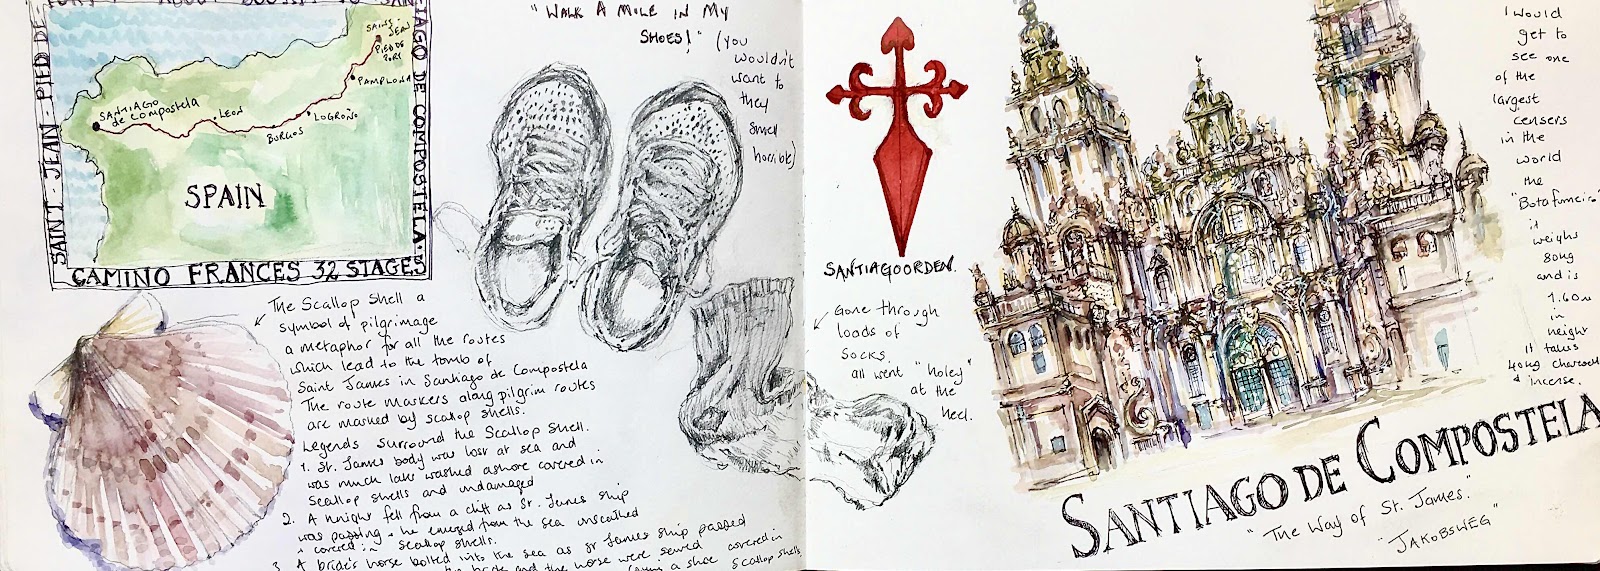 SAINT - JEAN - PIED DE
SANTIAGO DE COMPOSTELA.
CAMINO FRANCES 32 STAGES
SAINT-
JEAN
PIED DE
PORT
PAMPLONA
LOGROÑO
BURGOS
LEON
SANTIAGO
de COMPOSTELA
SPAIN
"WALK A MILE IN MY
SHOES!" (you
wouldn't
want to
they
smell
horrible)
The Scallop Shell a
symbol of pilgrimage
a metaphor for all the routes
which lead to the tomb of
Saint James in Santiago de Compostela
The route markers along pilgrim routes
are marked by scallop shells.
Legends surround the Scallop Shell.
1. St. James body was lost at sea and
was much later washed ashore covered in
Scallop shells and undamaged
2. A knight fell from a cliff as St. James ship
was passing & he emerged from the sea unscathed
& covered in scallop shells.
3. A bride's horse bolted into the sea as St James ship passed
the bride and the horse were saved covered in
scallop shells
SANTIAGOORDEN.
Gone through
loads of
socks.
all went "holey"
at the
heel.
I would
get to
see one
of the
largest
censers
in the
world
the
"Botafumeiro"
it
weighs
80kg
and is
1.60m
in
height
It takes
40kg charcoal
& incense.
SANTIAGO DE COMPOSTELA
"The Way of St. James."
"JAKOBSWEG"